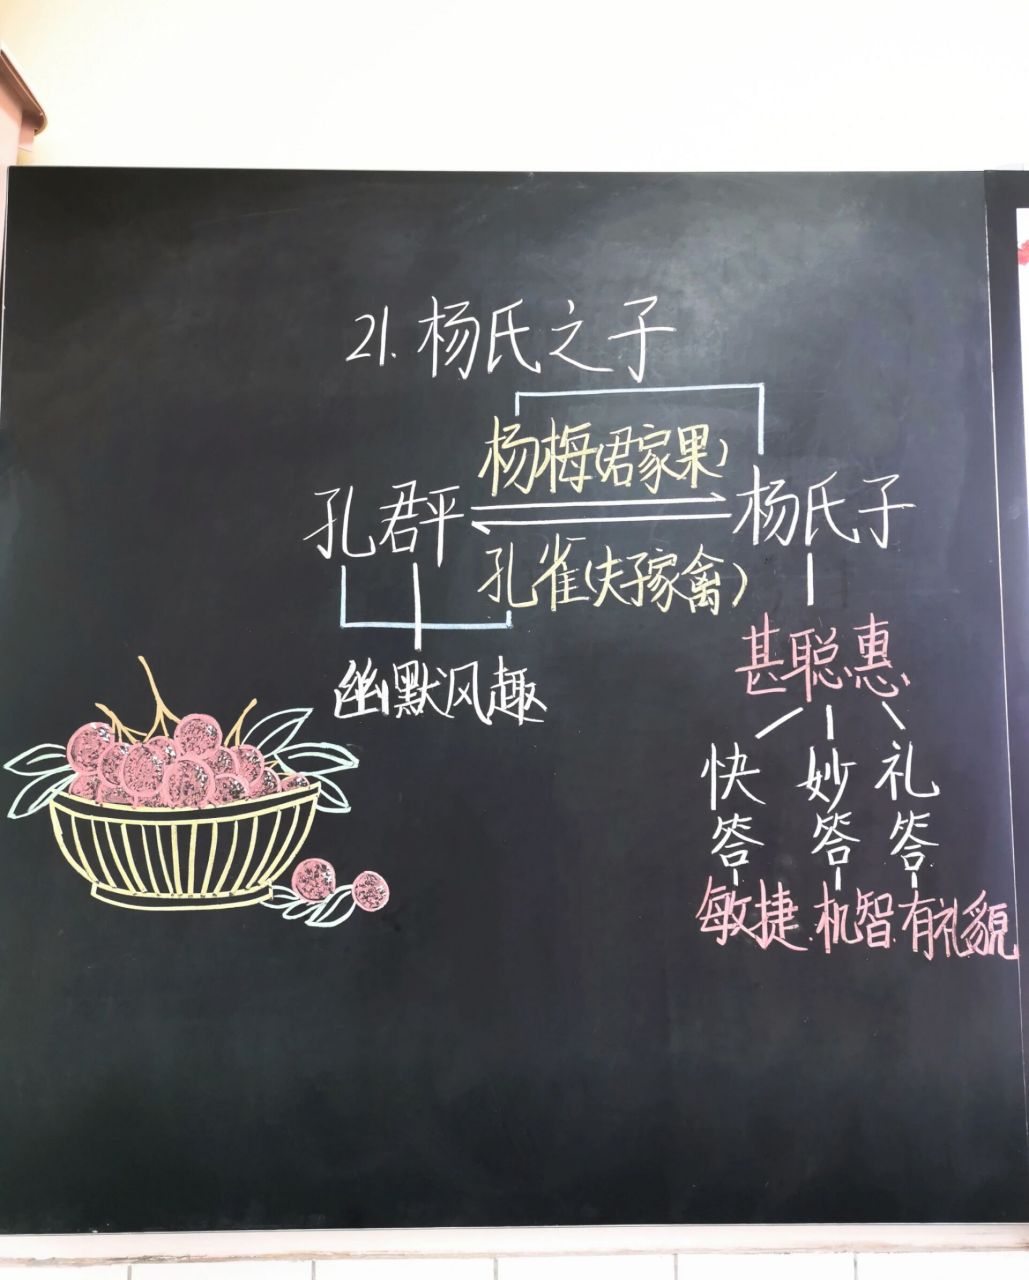 21.杨氏之子
杨梅(君家果)
孔君平
杨氏子
孔雀(夫子家禽)
甚聪惠
幽默风趣
快答
妙答
礼答
敏捷
机智
有礼貌